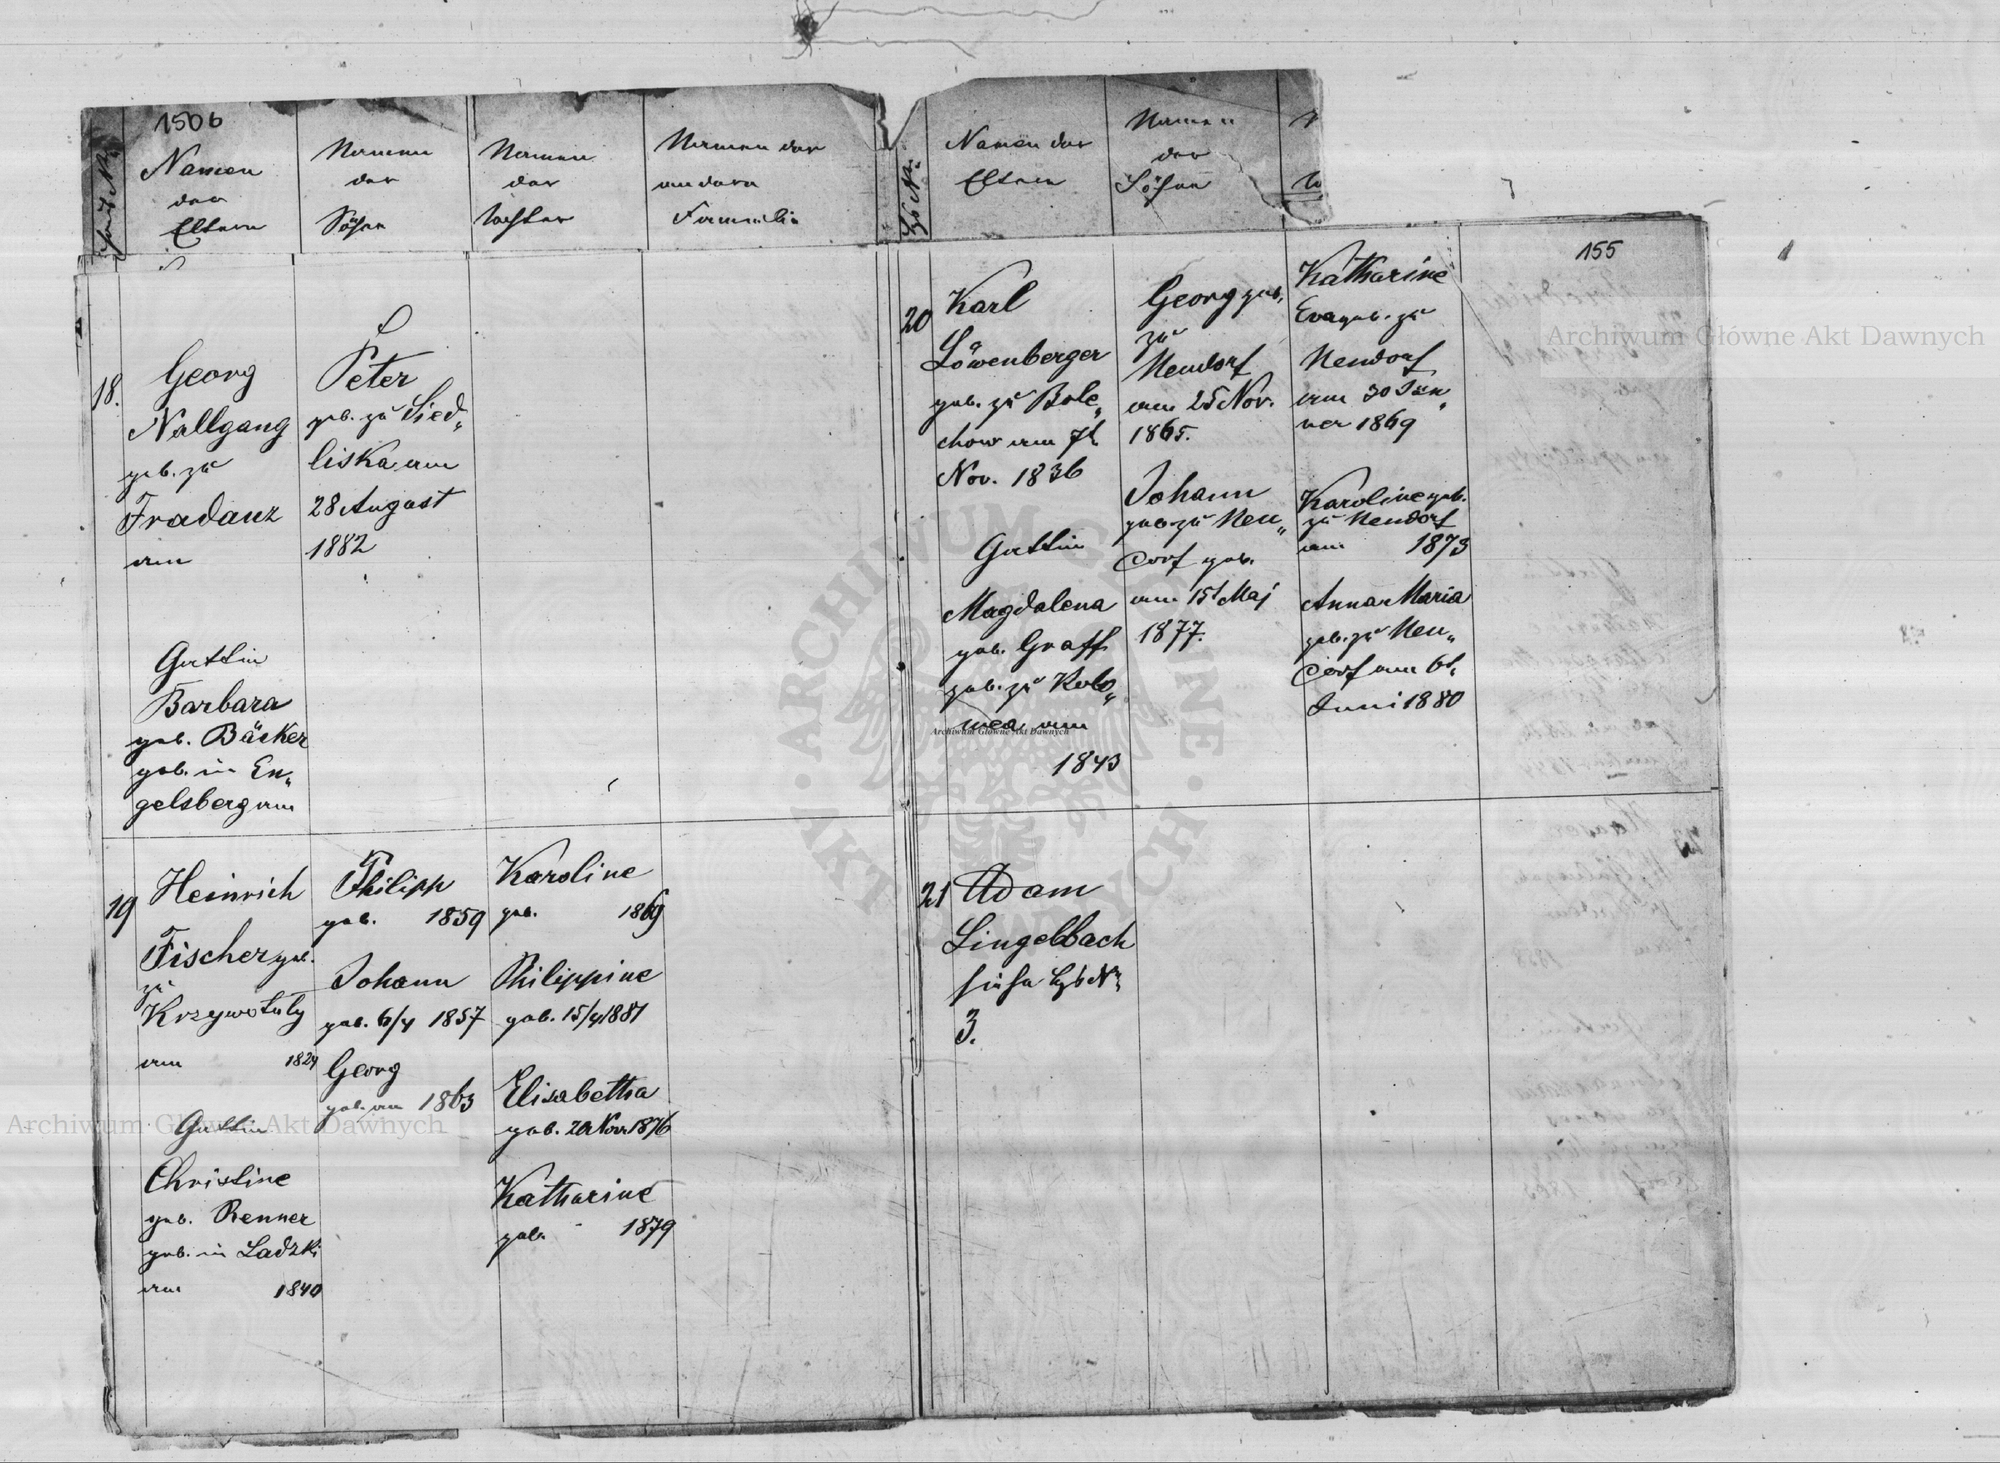 1506
Namen
der
Eltern
Namen
der
Söhne
Namen
der
Töchter
Namen der
andern
Familie
18.
Georg
Nallgang
geb. zu
Fradanz
am
Gattin
Barbara
geb. Bäcker
geb. in En„
gelsberg am
Peter
geb. zu Sied„
liska am
28 August
1882
19
Heinrich
Fischer geb.
zu
Krzywotuly
am 1824
Gattin
Christine
geb. Renner
geb. in Ladzki
am 1840
Philipp
geb. 1859
Johann
geb. 6/4 1857
Georg
geb. am 1863
Karoline
geb. 1869
Philippine
geb. 15/4 1881
Elisabetha
geb. 20 Nov. 1876
Katharine
geb. 1879
Namen der
Eltern
Namen
der
Söhne
155
20
Karl
Löwenberger
geb. zu Bole„
chow am 7t
Nov. 1836
Gattin
Magdalena
geb. Graff
geb. zu Kolo„
mea am
1843
Georg geb.
zu
Neudorf
am 25 Nov.
1865.
Johann
geb. zu Neu„
dorf geb.
am 15t Maj
1877.
Katharine
Eva geb. zu
Neudorf
am 30 Jän„
ner 1869
Karoline geb.
zu Neudorf
am 1873
Anna Maria
geb. zu Neu„
dorf am 6t
Juni 1880
21
Adam
Lingelbach
siehe Hs Nr
3.
Archiwum Główne Akt Dawnych
Archiwum Główne Akt Dawnych
Archiwum Główne Akt Dawnych
ARCHIWUM GŁÓWNE · AKT DAWNYCH ·